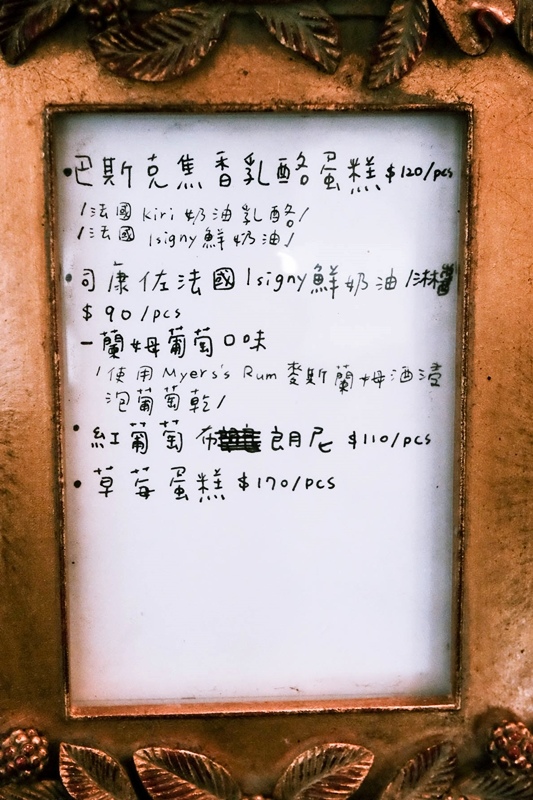 •巴斯克焦香乳酪蛋糕$120/pcs
/法國 kiri 奶油乳酪/
/法國 Isigny鮮奶油/
•司康佐法國Isigny鮮奶油/淋醬
$90/pcs
-蘭姆葡萄口味
/使用 Myers's Rum 麥斯蘭姆酒浸
泡葡萄乾/
•紅葡萄布朗尼 $110/pcs
•草莓蛋糕 $170/pcs